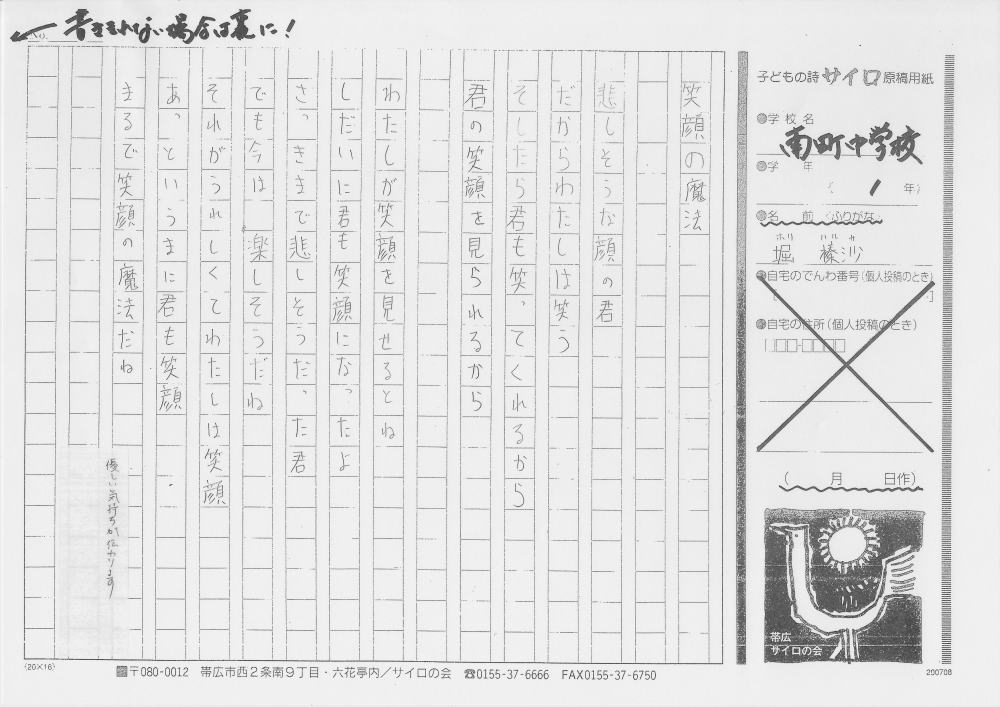 書ききれない場合は裏に！
No.
子どもの詩サイロ原稿用紙
学校名
南町中学校
学年
（1年）
名前（ふりがな）
ホリ ハルサ
堀 榛沙
自宅のでんわ番号（個人投稿のとき）
自宅の住所（個人投稿のとき）
（ 月 日作）
帯広
サイロの会
200708
笑顔の魔法
悲しそうな顔の君
だからわたしは笑う
そしたら君も笑ってくれるから
君の笑顔を見られるから
わたしが笑顔を見せるとね
しだいに君も笑顔になったよ
さっきまで悲しそうだった君
でも今は楽しそうだね
それがうれしくてわたしは笑顔
あっというまに君も笑顔
まるで笑顔の魔法だね
優しい気持ちが伝わります
(20×16)
〒080-0012 帯広市西2条南9丁目・六花亭内／サイロの会 ☎0155-37-6666 FAX0155-37-6750